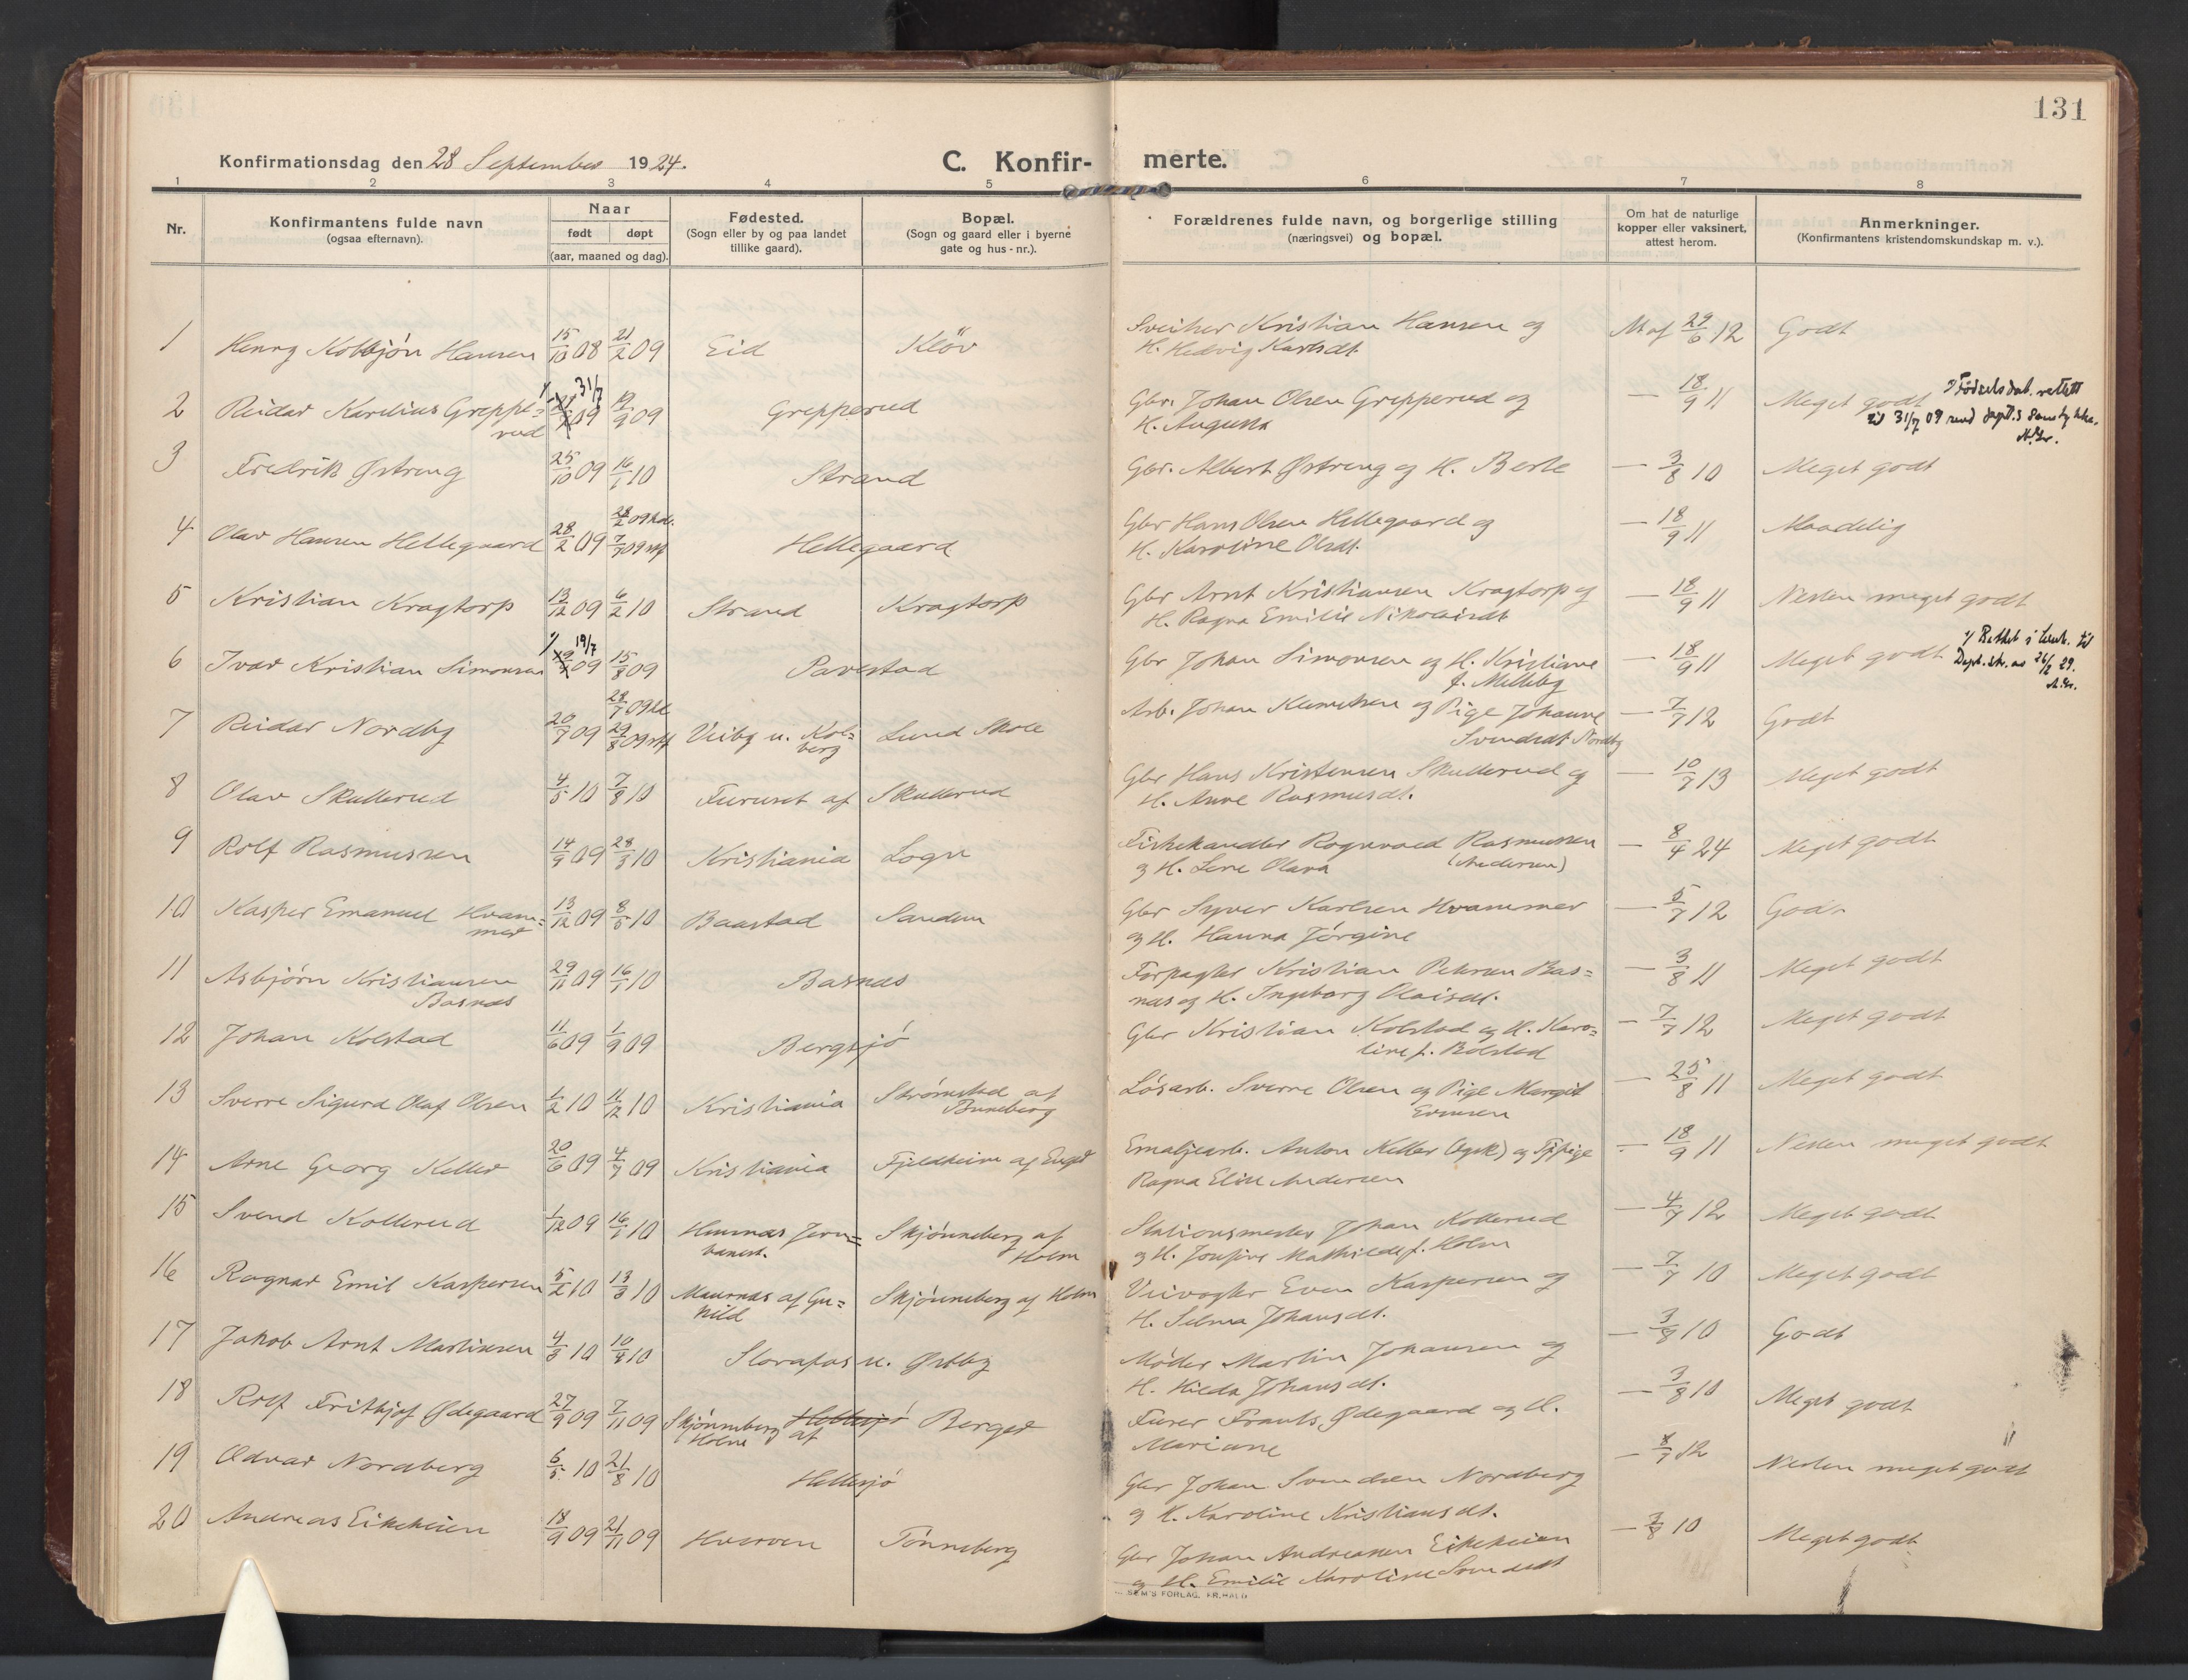 131
Konfirmationsdag den 28 September 1924.
C. Konfir-merte.
1 2 3 4 5 6 7 8
Nr.
Konfirmantens fulde navn
(ogsaa efternavn).
Naar
født døpt
(aar, maaned og dag).
Fødested.
(Sogn eller by og paa landet
tillike gaard).
Bopæl.
(Sogn og gaard eller i byerne
gate og hus-nr.).
Forældrenes fulde navn, og borgerlige stilling
(næringsvei) og bopæl.
Om hat de naturlige
kopper eller vaksinert,
attest herom.
Anmerkninger.
(Konfirmantens kristendomskundskap m. v.).
1 Henry Kolbjørn Hansen 15/10 08 21/2 09 Eid Kløv Sveiser Kristian Hansen og
H. Hedvig Karlsdt. At af 29/6 12 Godt
2 Reidar Karelius Greppe=
rud 1/ 31/7 09 19/9 09 Grepperud Gbr. Johan Olsen Grepperud og
H. Augusta — 18/9 11 Meget godt
1/ Fødselsdat. rettet
til 31/7 09 med dept.s samtykke.
3 Fredrik Østreng 25/10 09 16/1 10 Strand Gbr. Albert Østreng og H. Berte — 3/8 10 Meget godt
4 Olav Hansen Hellegaard 28/2 09 28/2 09 hd.
7/7 09 stf Hellegaard Gbr Hans Olsen Hellegaard og
H. Karoline Olsdt. — 18/9 11 Maadelig
5 Kristian Kragtorp 13/12 09 6/2 10 Strand Kragtorp Gbr Arnt Kristiansen Kragtorp og
H. Ragna Emilie Nikolaisdt — 18/9 11 Nesten meget godt
6 Ivar Kristian Simonsen 1/ 19/7 09 15/8 09 Pavestad Gbr Johan Simonsen og H. Kristiane
f. Melleby — 18/9 11 Meget godt
1/ Rettet i henh. til
Dept. skr. av 26/2 29.
7 Reidar Nordby 20/7 09 28/7 09 hd
29/8 09 stf Veiby u. Kol=
berg Lund Skole Arb. Johan Klemetsen og Pige Johanne
Svendsdt Nordby — 7/7 12 Godt
8 Olav Skullerud 4/5 10 7/8 10 Furuset af Skullerud Gbr Hans Kristensen Skullerud og
H. Anne Rasmusdt. — 10/7 13 Meget godt
9 Rolf Rasmussen 14/9 09 28/3 10 Kristiania Logn Fiskehandler Ragnvald Rasmussen
og H. Lene Olava (Andersen) — 8/4 24 Meget godt
10 Kasper Emanuel Hvam=
mer 13/12 09 8/5 10 Baastad Sandum Gbr Syver Karlsen Hvammer
og H. Hanna Jørgine — 5/7 12 Godt
11 Asbjørn Kristiansen
Basnes 29/11 09 16/1 10 Basnes Forpagter Kristian Petersen Bas=
nes og H. Ingeborg Olaisdt. — 3/8 11 Meget godt
12 Johan Kolstad 11/6 09 1/9 09 Bergsjø Gbr Kristian Kolstad og H. Karo=
line f. Bolstad — 7/7 12 Meget godt
13 Sverre Sigurd Olaf Olsen 1/2 10 11/12 10 Kristiania Strømstad af
Buneberg Løsarb. Sverre Olsen og Pige Margit
Evensen — 25/8 11 Meget godt
14 Arne Georg Keller 20/6 09 4/7 09 Kristiania Fjeldheim af Enger Emaljearb. Anton Keller (tysk) og Tj.pige
Ragna Elise Andersen — 18/9 11 Nesten meget godt
15 Svend Kollerud 1/12 09 16/1 10 Hemnes Jern=
banest. Skjønneberg af
Holm Stationsmester Johan Kollerud
og H. Josefine Mathilde f. Holm — 4/7 12 Meget godt
16 Ragnar Emil Kaspersen 5/2 10 13/3 10 Maurnes af Gu=
nild Skjønneberg af Holm Veivogter Even Kaspersen og
H. Selma Johansdt. — 7/7 10 Meget godt
17 Jakob Arnt Martinsen 4/3 10 10/4 10 Storafos u. Østby Møder Martin Johansen og
H. Hilda Johansdt. — 3/8 10 Godt
18 Rolf Frithjof Ødegaard 27/9 09 7/11 09 Skjønneberg af
Holm Hellesjø Berger Furer Frants Ødegaard og H.
Mariane — 3/8 10 Meget godt
19 Edvar Nordberg 6/5 10 21/8 10 Hellesjø Gbr Johan Svendsen Nordberg
og H. Karoline Kristiansdt. — 8/7 12 Nesten meget godt
20 Andreas Eikeheien 18/9 09 21/11 09 Hverven Tønneberg Gbr Johan Andreassen Eikeheien
og H. Emilie Karoline Svendsdt — 3/8 10 Meget godt
SEM'S FORLAG, FR.HALD